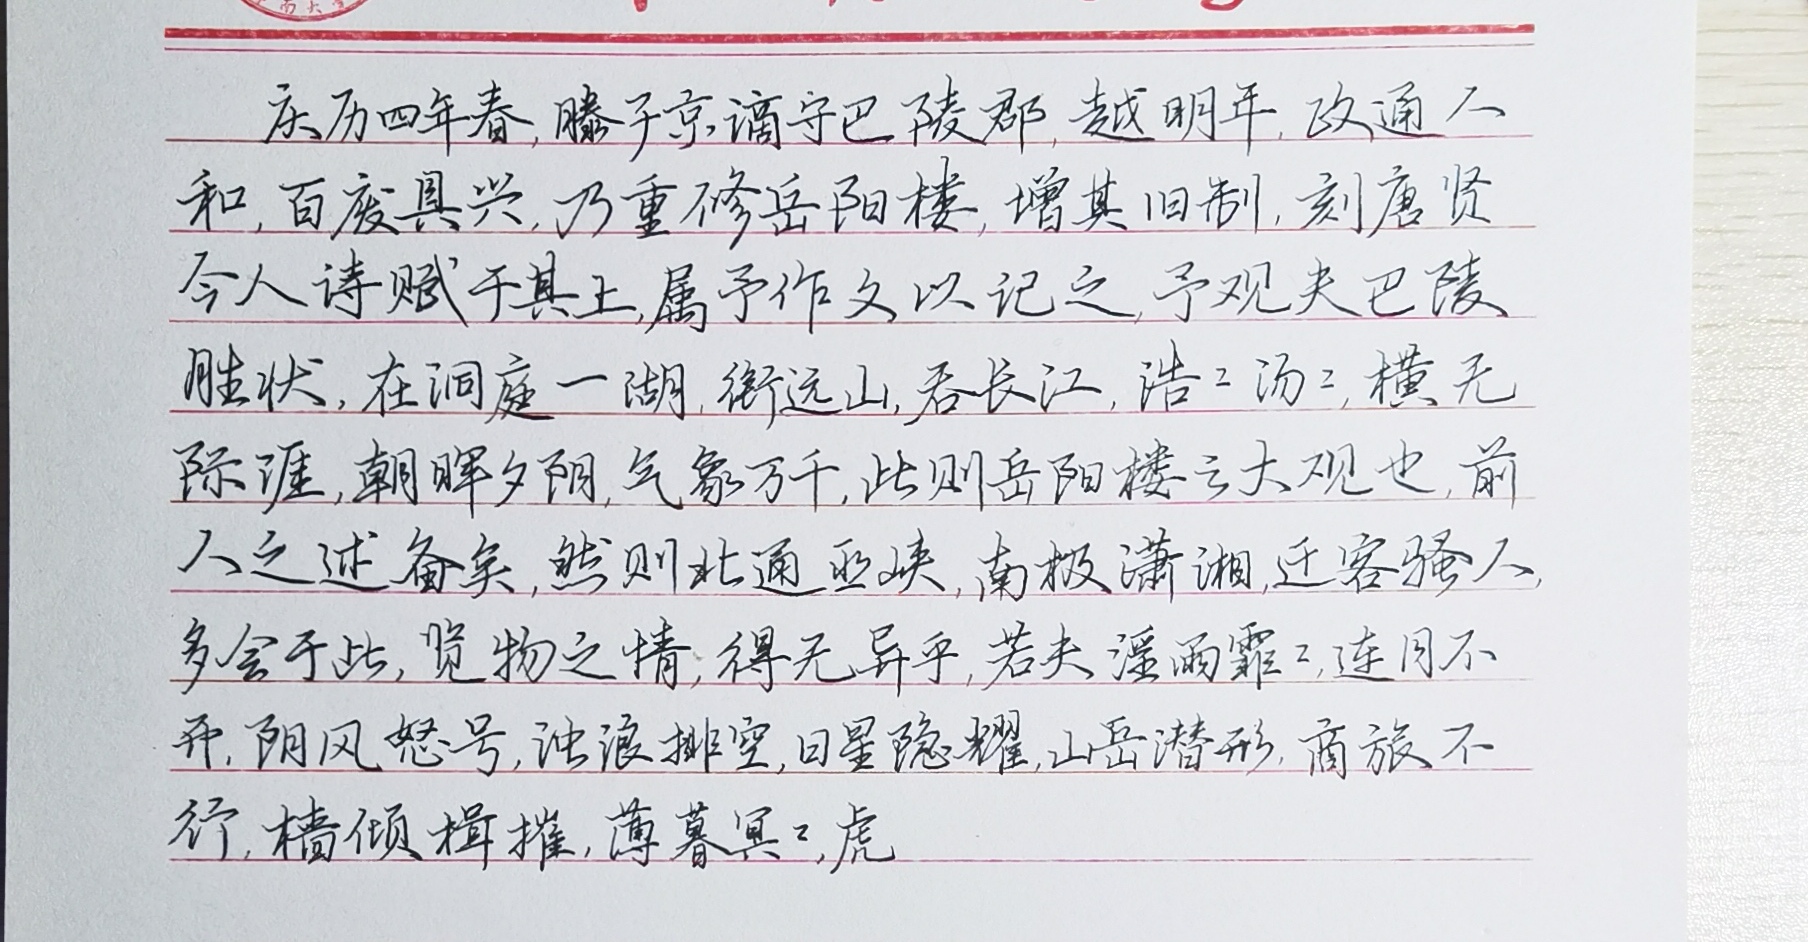 南大
庆历四年春,滕子京谪守巴陵郡,越明年,政通人
和,百废具兴,乃重修岳阳楼,增其旧制,刻唐贤
今人诗赋于其上,属予作文以记之,予观夫巴陵
胜状,在洞庭一湖,衔远山,吞长江,浩〻汤〻,横无
际涯,朝晖夕阴,气象万千,此则岳阳楼之大观也,前
人之述备矣,然则北通巫峡,南极潇湘,迁客骚人,
多会于此,览物之情,得无异乎,若夫淫雨霏〻,连月不
开,阴风怒号,浊浪排空,日星隐耀,山岳潜形,商旅不
行,樯倾楫摧,薄暮冥〻,虎